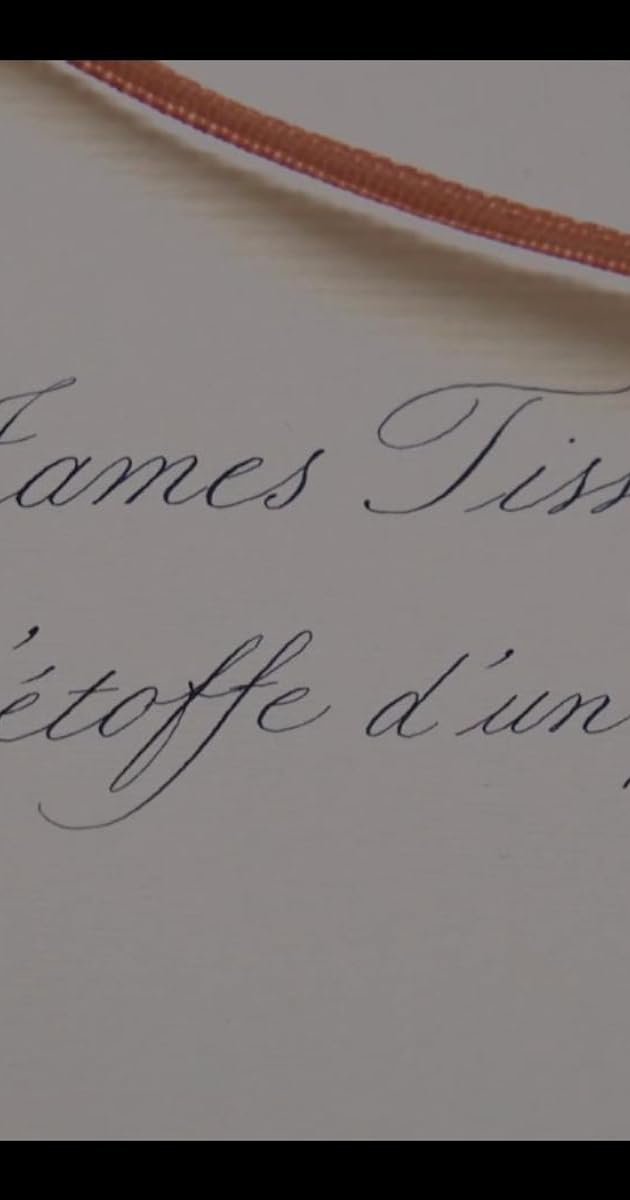 James Tiss
'étoffe d'un